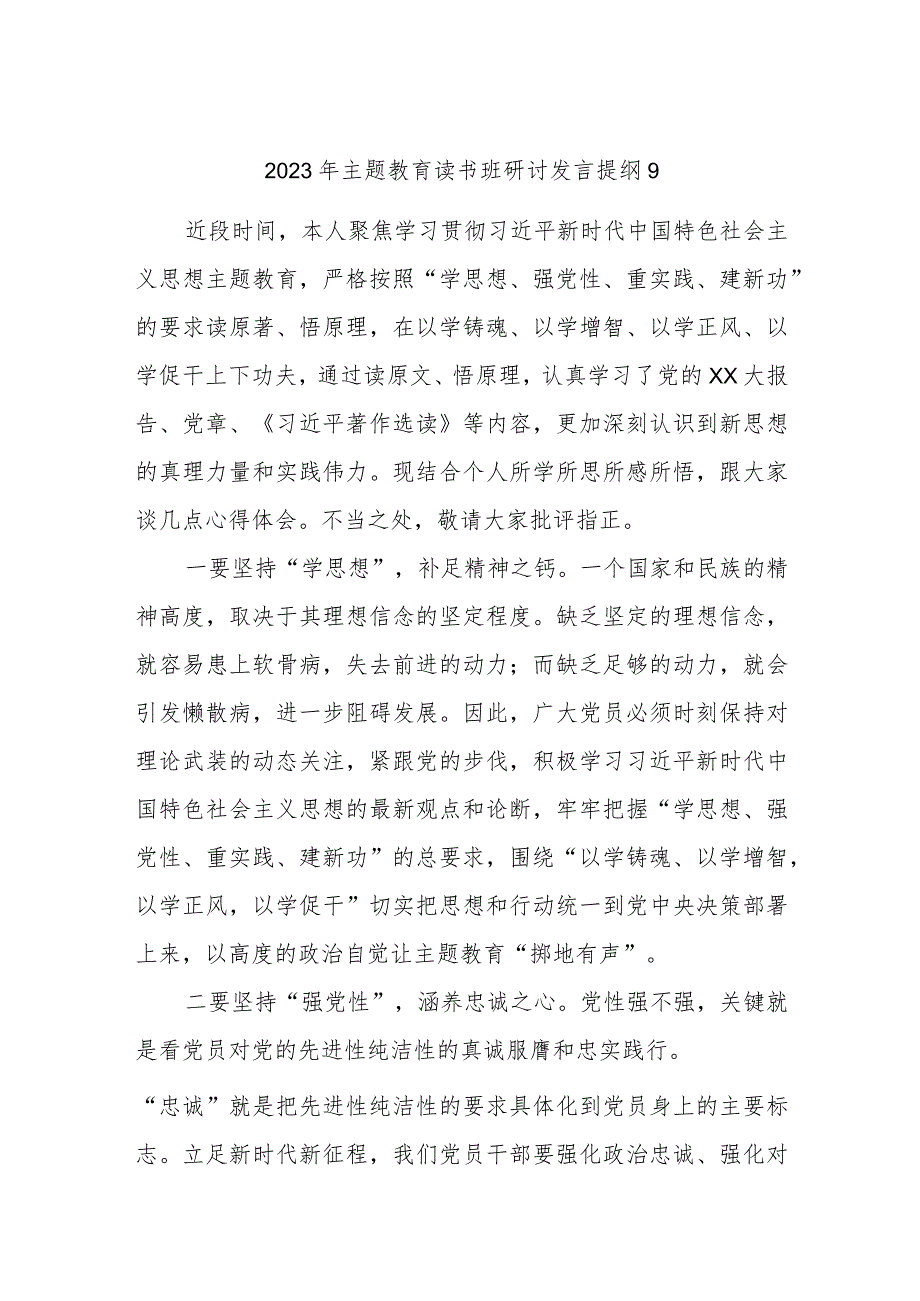 2023 年主题教育读书班研讨发言提纲 9
近段时间，本人聚焦学习贯彻习近平新时代中国特色社会主
义思想主题教育，严格按照“学思想、强党性、重实践、建新功”
的要求读原著、悟原理，在以学铸魂、以学增智、以学正风、以
学促干上下功夫，通过读原文、悟原理，认真学习了党的 XX 大报
告、党章、《习近平著作选读》等内容，更加深刻认识到新思想
的真理力量和实践伟力。现结合个人所学所思所感所悟，跟大家
谈几点心得体会。不当之处，敬请大家批评指正。
一要坚持“学思想”，补足精神之钙。一个国家和民族的精
神高度，取决于其理想信念的坚定程度。缺乏坚定的理想信念，
就容易患上软骨病，失去前进的动力；而缺乏足够的动力，就会
引发懒散病，进一步阻碍发展。因此，广大党员必须时刻保持对
理论武装的动态关注，紧跟党的步伐，积极学习习近平新时代中
国特色社会主义思想的最新观点和论断，牢牢把握“学思想、强
党性、重实践、建新功”的总要求，围绕“以学铸魂、以学增智，
以学正风，以学促干”切实把思想和行动统一到党中央决策部署
上来，以高度的政治自觉让主题教育“掷地有声”。
二要坚持“强党性”，涵养忠诚之心。党性强不强，关键就
是看党员对党的先进性纯洁性的真诚服膺和忠实践行。
“忠诚”就是把先进性纯洁性的要求具体化到党员身上的主要标
志。立足新时代新征程，我们党员干部要强化政治忠诚、强化对